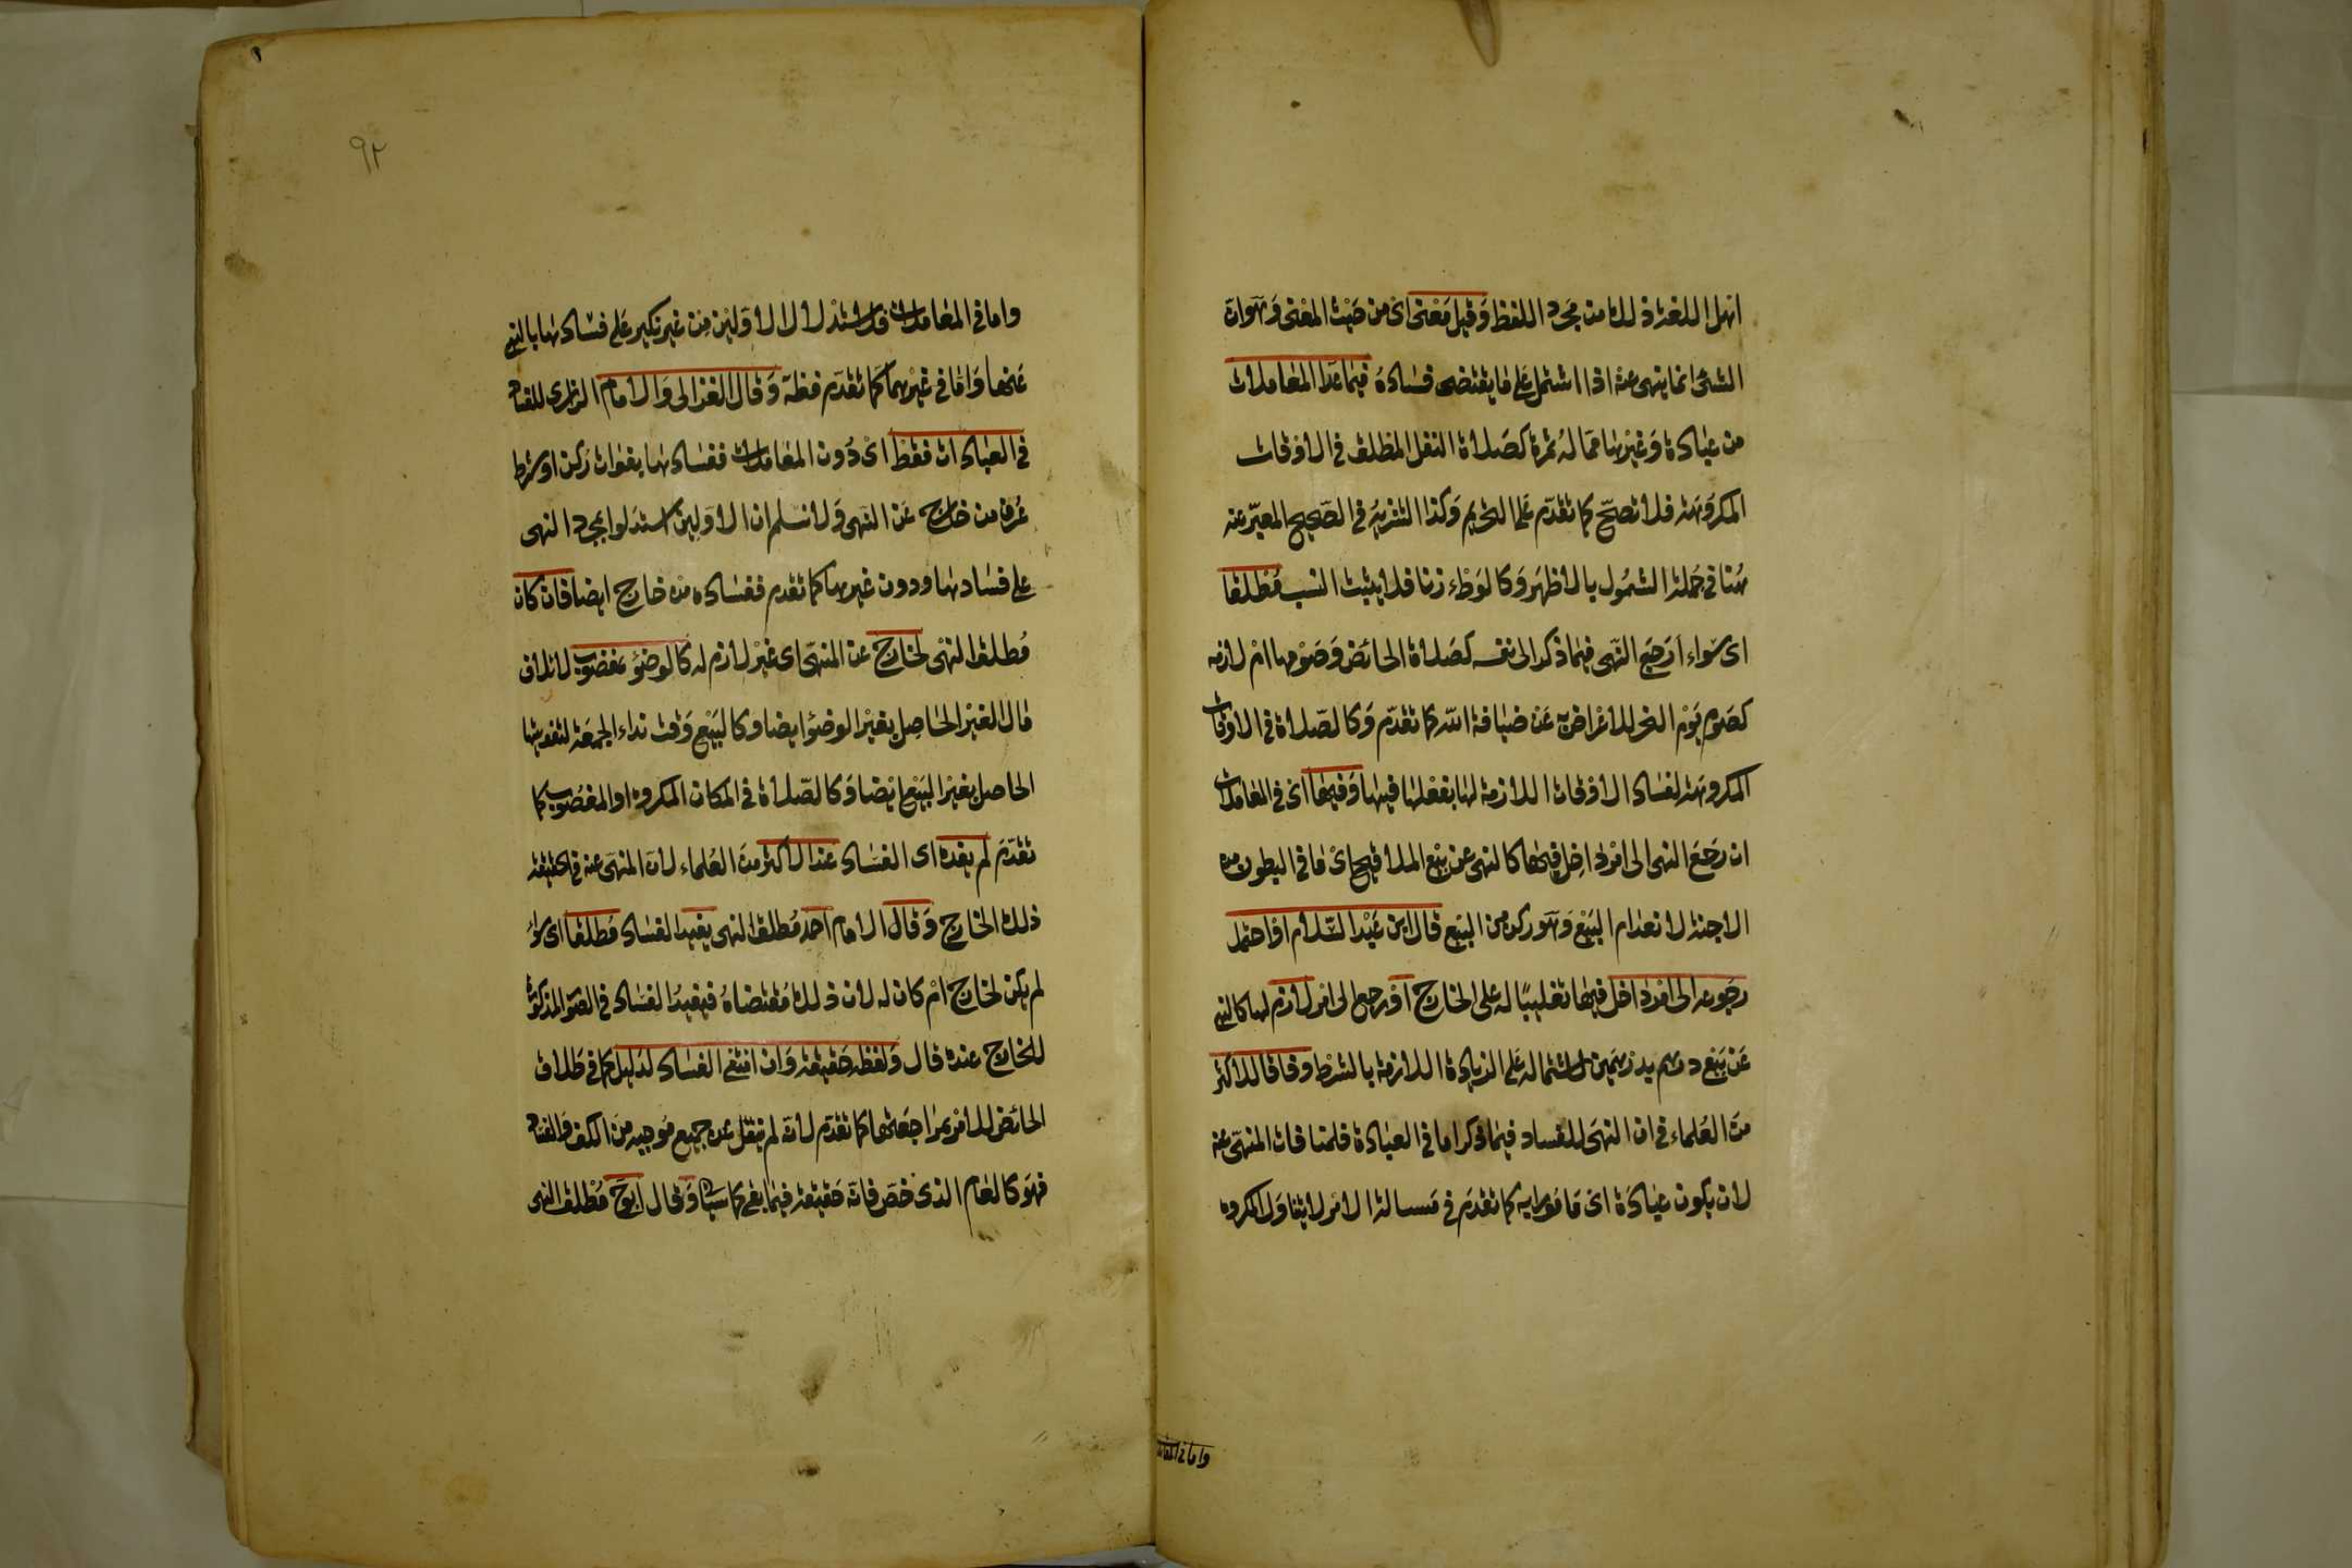 اهل اللغة ذلك من مجرد اللفظ وقيل معنى اى من حيث المعنى وهوان
الشئ انما ينهى عنه اذا اشتمل على ما يقتضى فساده فيما عدا المعاملات
من عبادة وغيرها مما له ثمرة كصلاة النفل المطلق فى الاوقات
المكروهة فلا تصح كما تقدم على التحريم وكذا التنزيه فى الصحيح المعبر عنه
هنا فى جملة الشمول بالاظهر وكالوطء زنا فلا يثبت النسب مطلقا
اى سواء ارجع النهى فيما ذكر الى نفسه كصلاة الحائض وصومها ام لازمه
كصوم يوم النحر للاعراض به عن ضيافة الله كما تقدم وكالصلاة فى الاوقات
المكروهة لفساد الاوقات اللازمة لها بفعلها فيها وفيها اى فى المعاملات
ان رجع النهى الى امر داخل فيها كالنهى عن بيع الملاقيح اى ما فى البطون من
الاجنة لانعدام البيع وهو ركن من البيع قال ابن عبد السلام او احتمل
رجوعه الى امر داخل فيها تغليبا له على الخارج او رجع الى امر لازم لها كالنهى
عن بيع درهم بدرهمين لاشتماله على الزيادة اللازمة بالشرط وفاقا للاكثر
من العلماء فى ان النهى للفساد فيما ذكر اما فى العبادة فلمنافاة المنهى عنه
لان يكون عبادة اى مامورا به كما تقدم فى مسالة الامر لا يتناول المكروه
واما فى المعاملات
٩٢
واما فى المعاملات فلاستدلال الاولين من غير نكير على فسادها بالنهى
عنها واما فى غيرهما كما تقدم فظ‍ه وقال الغزالى والامام الرازى للفساد
فى العبادات فقط اى دون المعاملات ففسادها بفوات ركن او شرط
عرف من خارج عن النهى ولا نسلم ان الاولين استدلوا بمجرد النهى
على فسادها ودون غيرها كما تقدم ففساده من خارج ايضا فان كان
مطلق النهى لخارج عن المنهى اى غير لازم له كالوضوء بمغصوب لاتلاف
مال الغير الحاصل بغير الوضوء ايضا وكالبيع وقت نداء الجمعة لتفويتها
الحاصل بغير البيع ايضا وكالصلاة فى المكان المكروه او المغصوب كما
تقدم لم يفده اى الفساد عند الاكثر من العلماء لان المنهى عنه فى الحقيقة
ذلك الخارج وقال الامام احمد مطلق النهى يفيد الفساد مطلقا اى سواء
لم يكن لخارج ام كان له لان ذلك مقتضاه فيفيد الفساد فى الصور المذكورة
للخارج عنده قال ولفظه حقيقة وان انتفى الفساد لدليل كما فى طلاق
الحائض للامر بمراجعتها كما تقدم لانه لم ينتقل عن جميع موجبه من الكف والفساد
فهو كالعام الذى خص فانه حقيقة فيما بقى كما سياتى وقال ابو ح مطلق النهى